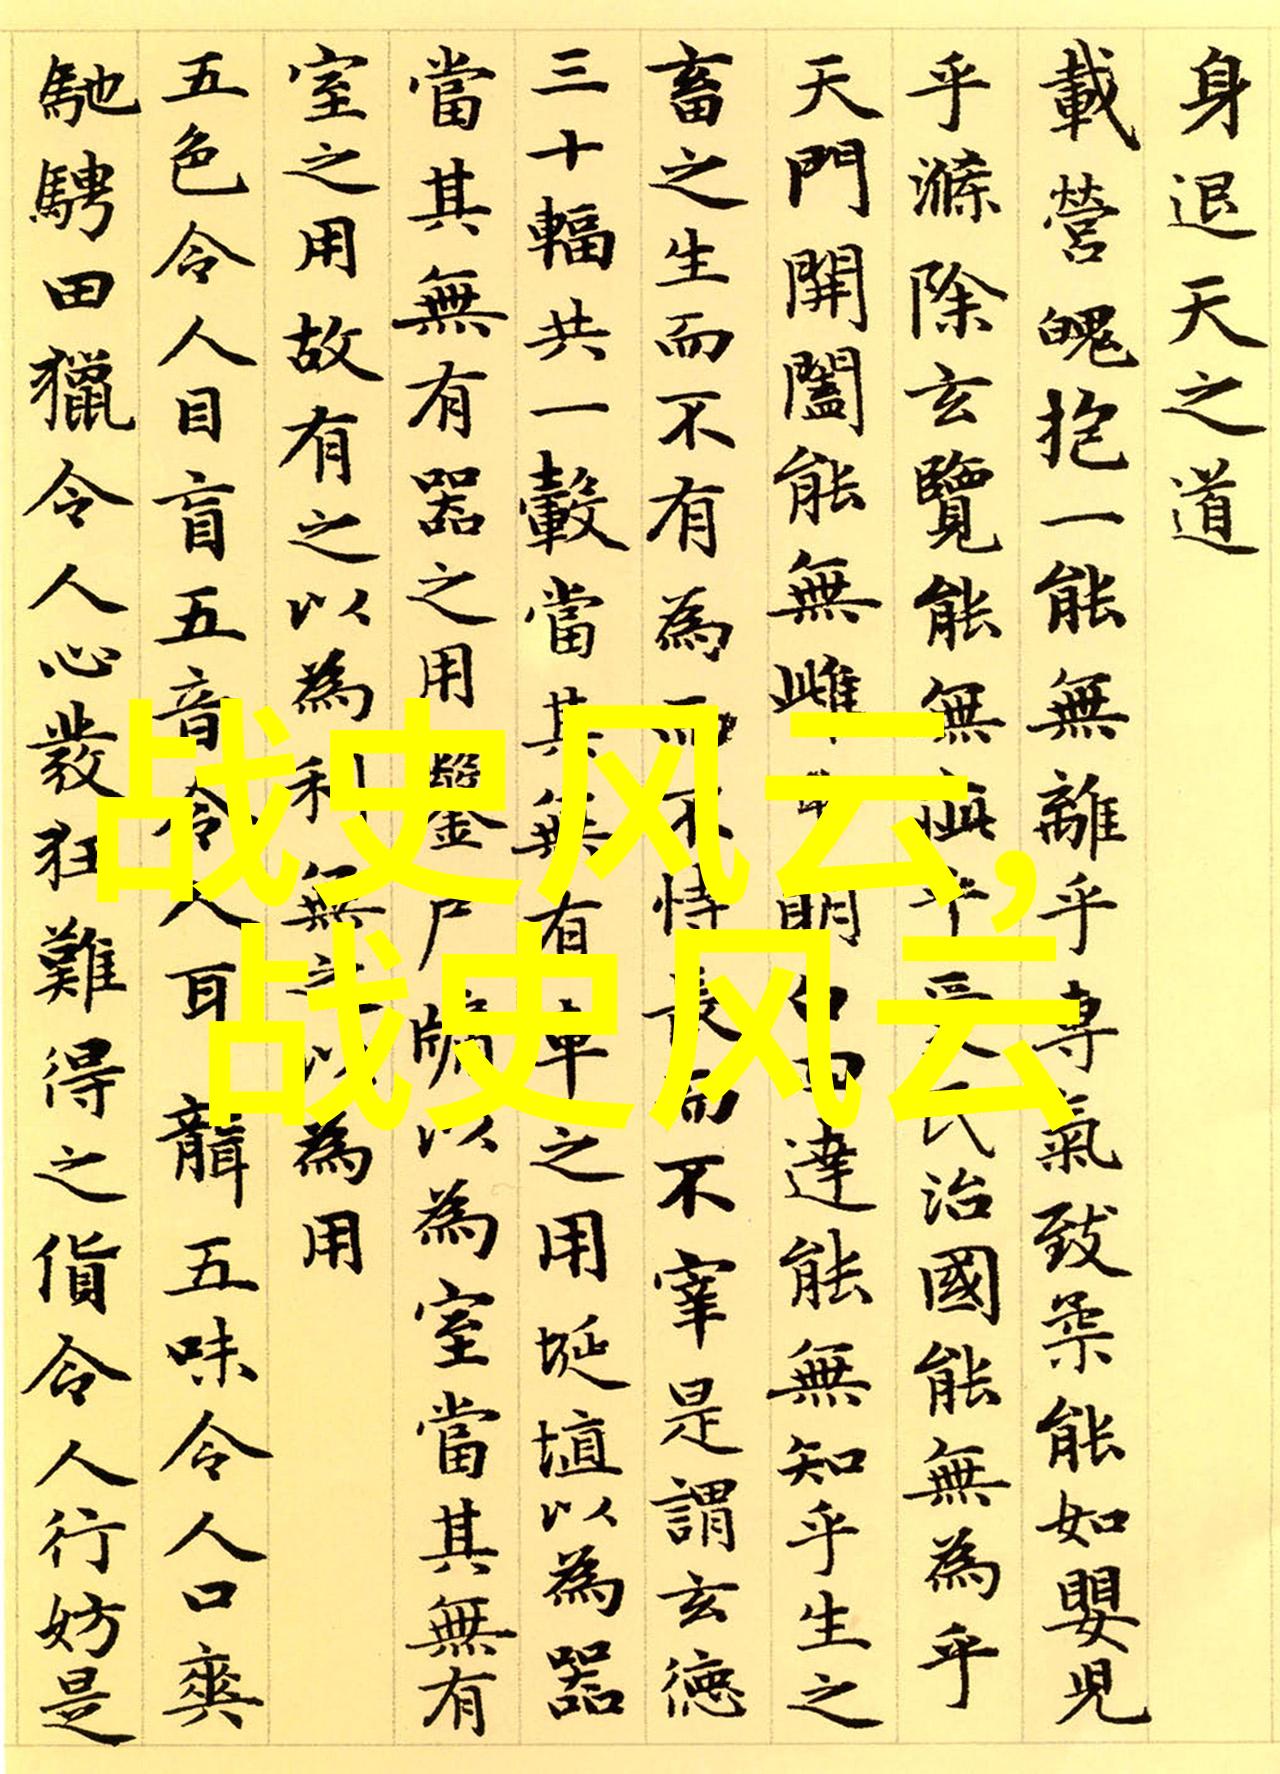 身退天之道
載營魄抱一能無離乎專氣致柔能如嬰兒
乎滌除玄覽能無疵乎愛民治國能無為乎
天門開闔能無雌乎明白四達能無知乎生之
畜之生而不有為而不恃長而不宰是謂玄德
三十輻共一轂當其無有車之用埏埴以為器
當其無有器之用鑿戶牖以為室當其無有
室之用故有之以為利無之以為用
五色令人目盲五音令人耳聾五味令人口爽
馳騁田獵令人心發狂難得之貨令人行妨是
战史风云,
战史风云